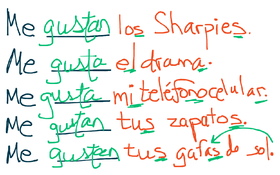 Me gustan los Sharpies.
Me gusta el drama.
Me gusta mi teléfono celular.
Me gustan tus zapatos.
Me gustan tus gafas de sol.